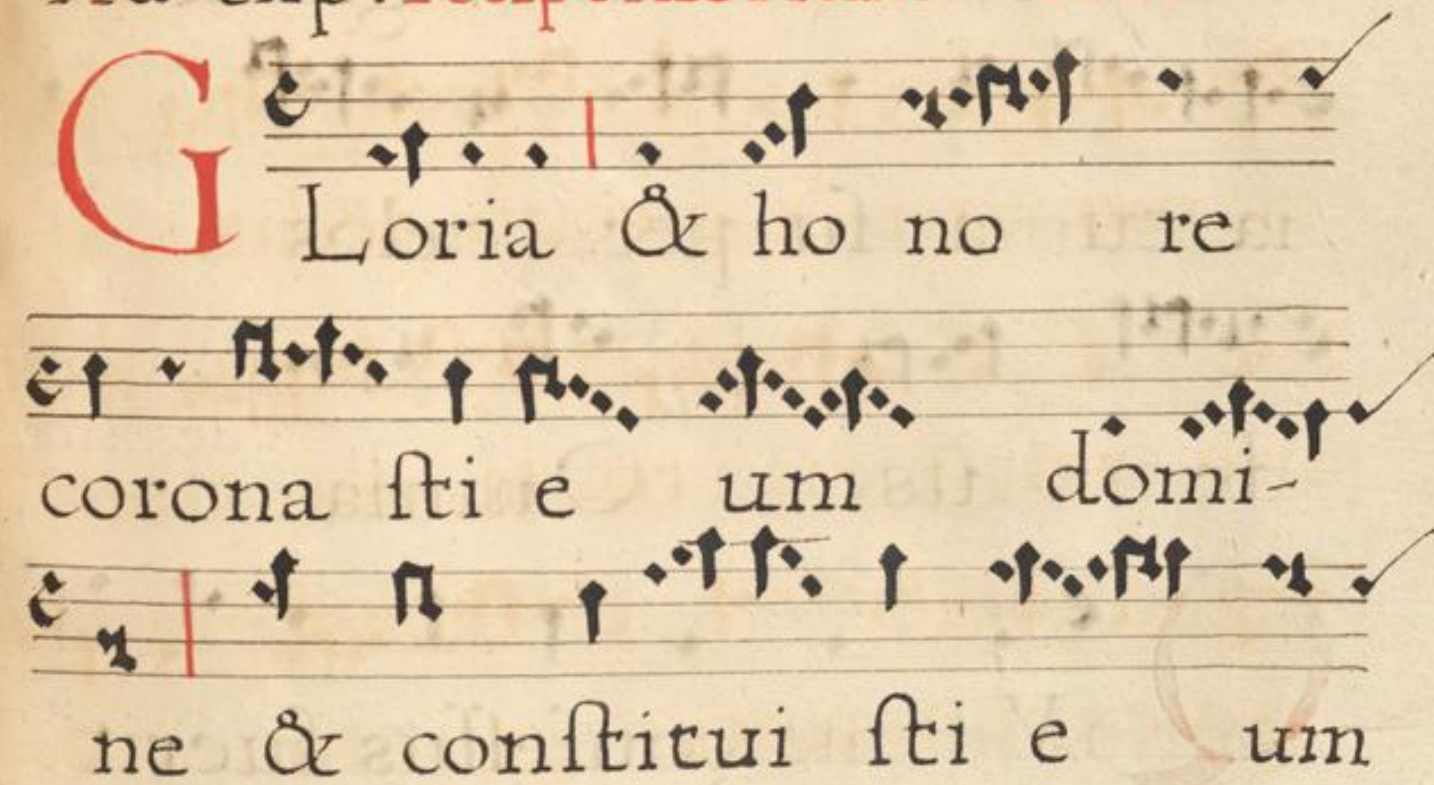 GLoria & ho no re
corona ſti e um domi-
ne & conſtitui ſti e um